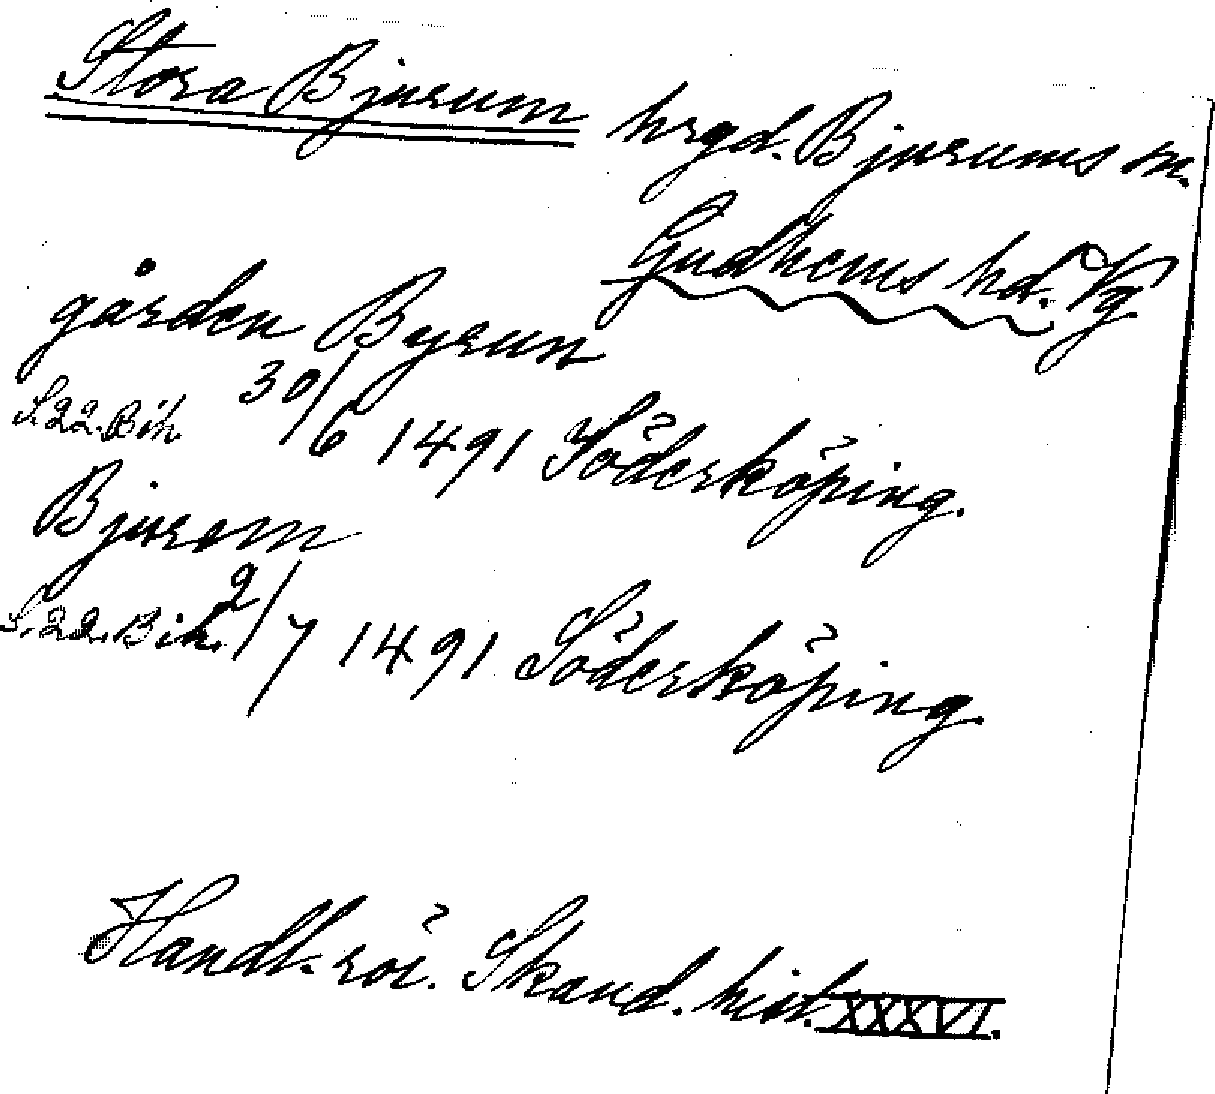 Stora Bjurum hrgd. Bjurums sn.
Gudhems hd. Vg
gården Byrun
S. 22. Bih. 30/6 1491 Söderköping.
Bjurom
S. 22. Bih. 2/7 1491 Söderköping.
Handl. rör. Skand. hist. XXXVI.